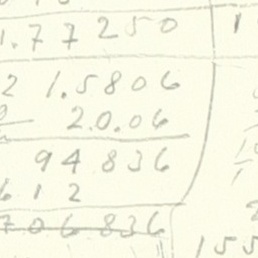 1.77250
21.5806
2.0.06
94836
612
706836
155